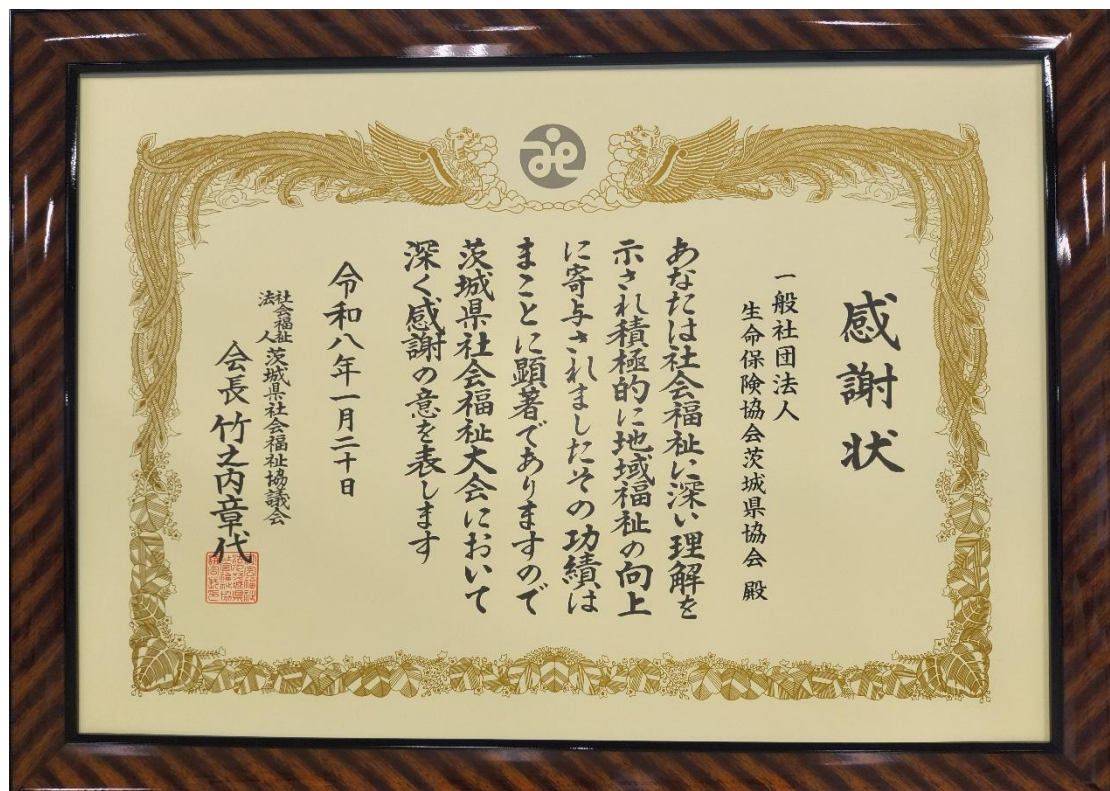 感謝状
一般社団法人
生命保険協会茨城県協会 殿
あなたは社会福祉に深い理解を
示され積極的に地域福祉の向上
に寄与されましたその功績は
まことに顕著でありますので
茨城県社会福祉大会において
深く感謝の意を表します
令和八年一月二十日
社会福祉法人 茨城県社会福祉協議会
会長 竹之内章代